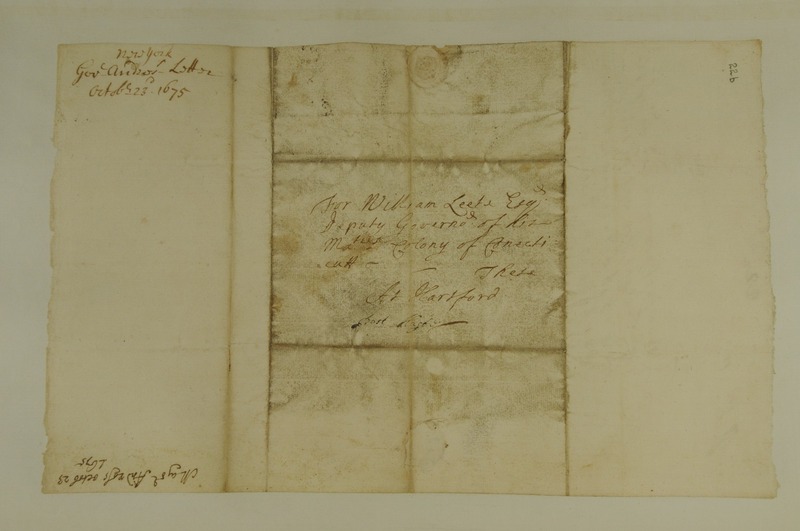 New York
Govr Andros Letter
Octobr 23d 1675
226
For William Leete Esqr
Deputy Governor of his
Maties Colony of Conecti
cutt –
– These
At Hartford
Andross octob 23
1675